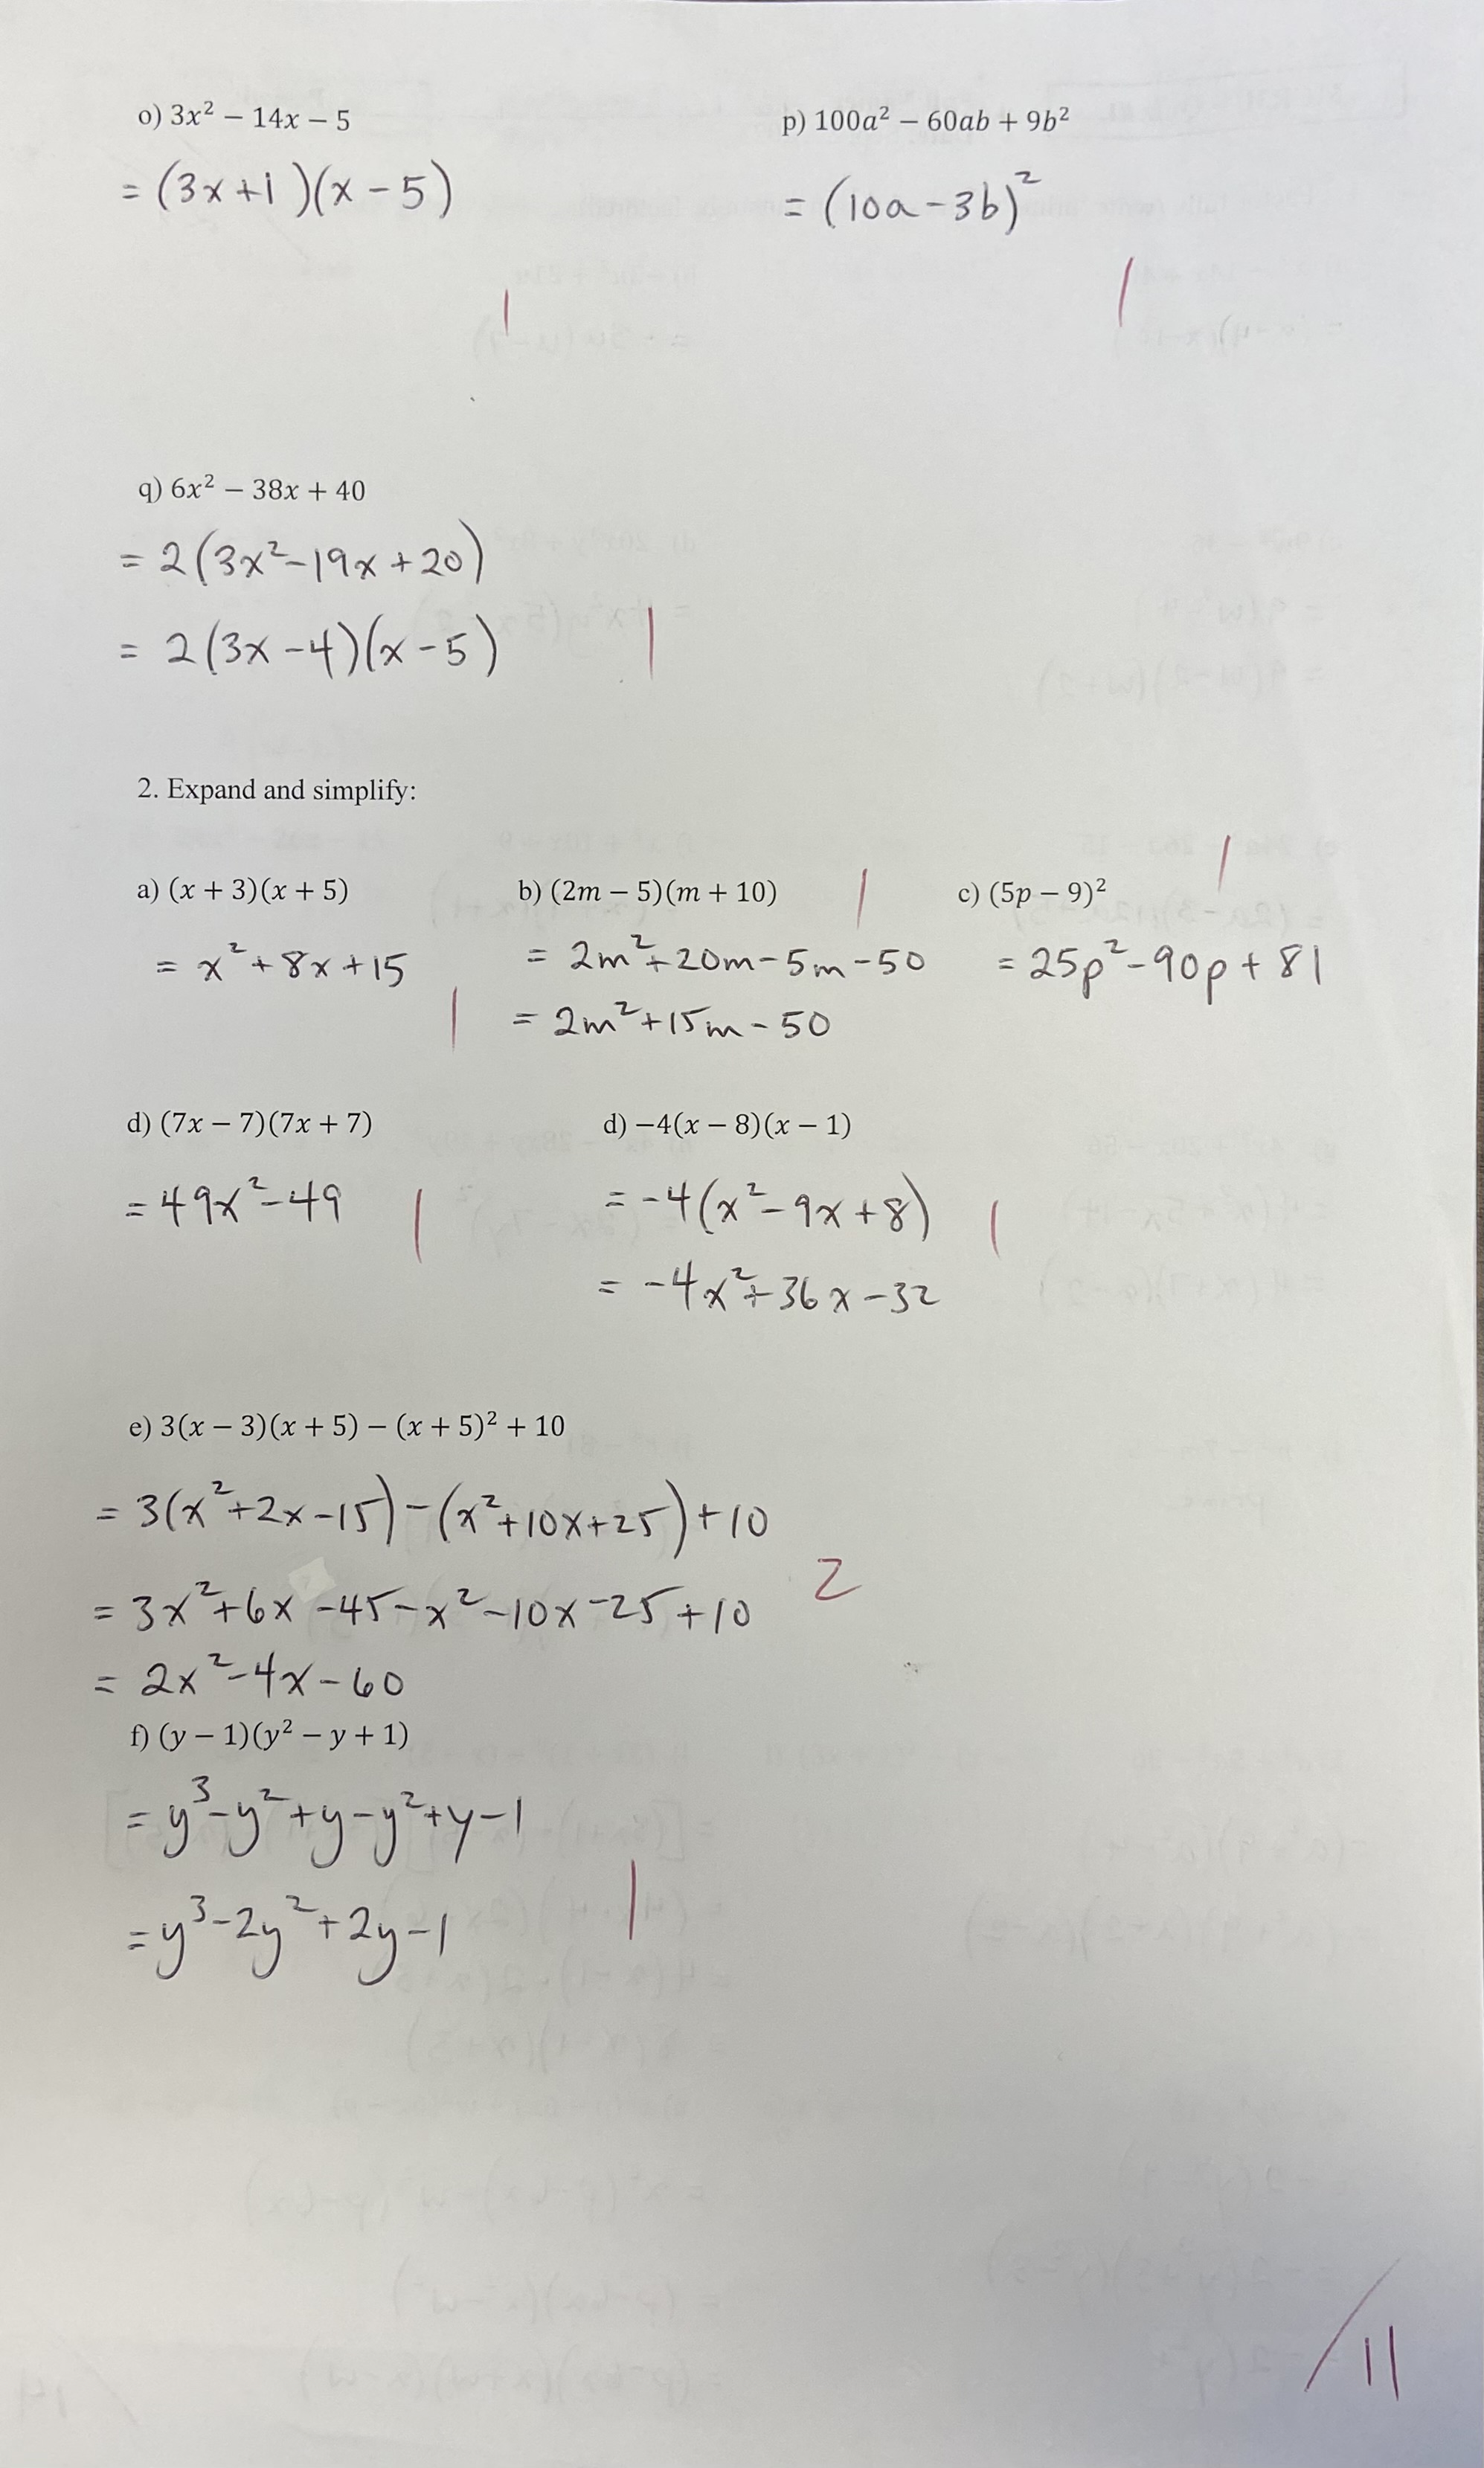 o) 3x² − 14x − 5
= (3x+1)(x−5)
1
p) 100a² − 60ab + 9b²
= (10a−3b)²
1
q) 6x² − 38x + 40
= 2(3x²−19x+20)
= 2(3x−4)(x−5)
1
2. Expand and simplify:
a) (x + 3)(x + 5)
= x²+8x+15
1
b) (2m − 5)(m + 10)
1
= 2m²+20m−5m−50
= 2m²+15m−50
c) (5p − 9)²
1
= 25p²−90p+81
d) (7x − 7)(7x + 7)
= 49x²−49
1
d) −4(x − 8)(x − 1)
= −4(x²−9x+8)
1
= −4x²+36x−32
e) 3(x − 3)(x + 5) − (x + 5)² + 10
= 3(x²+2x−15)−(x²+10x+25)+10
2
= 3x²+6x−45−x²−10x−25+10
= 2x²−4x−60
f) (y − 1)(y² − y + 1)
= y³−y²+y−y²+y−1
1
= y³−2y²+2y−1
/11